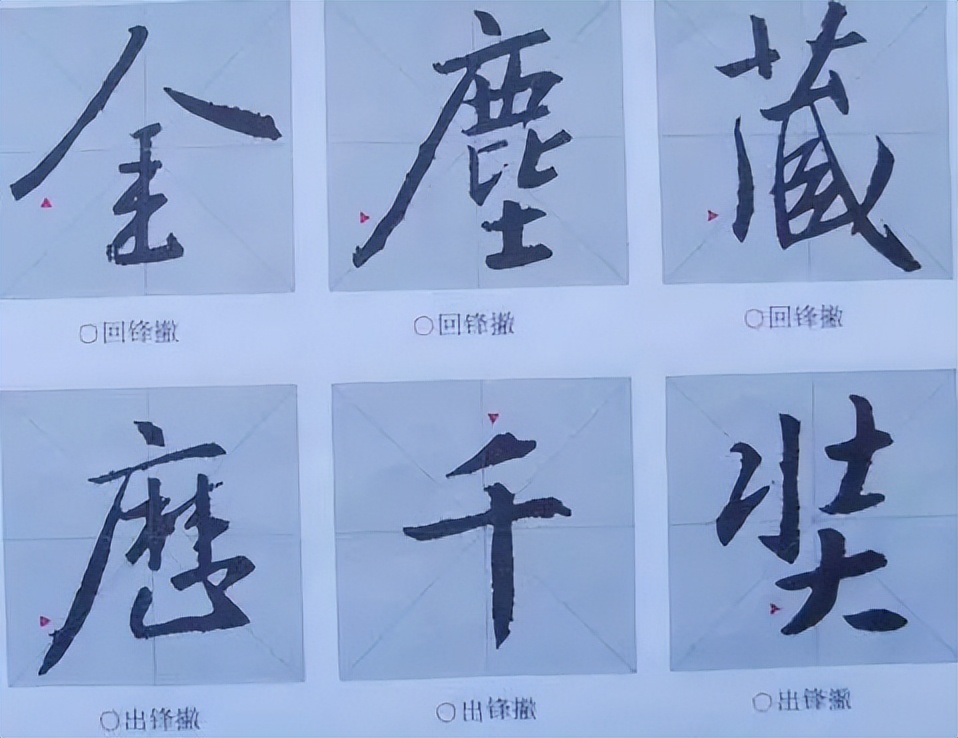 金 塵 藏
○回锋撇 ○回锋撇 ○回锋撇
千 奘
○出锋撇 ○出锋撇 ○出锋撇